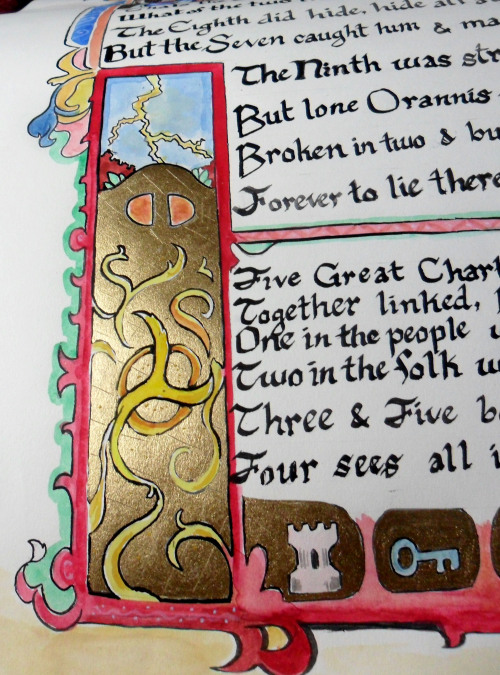 What of the two
The Eighth did hide, hide all
But the Seven caught him & ma
The Ninth was str
But lone Orannis
Broken in two & bu
Forever to lie there
Five Great Chart
Together linked,
One in the people
Two in the folk w
Three & Five b
Four sees all i